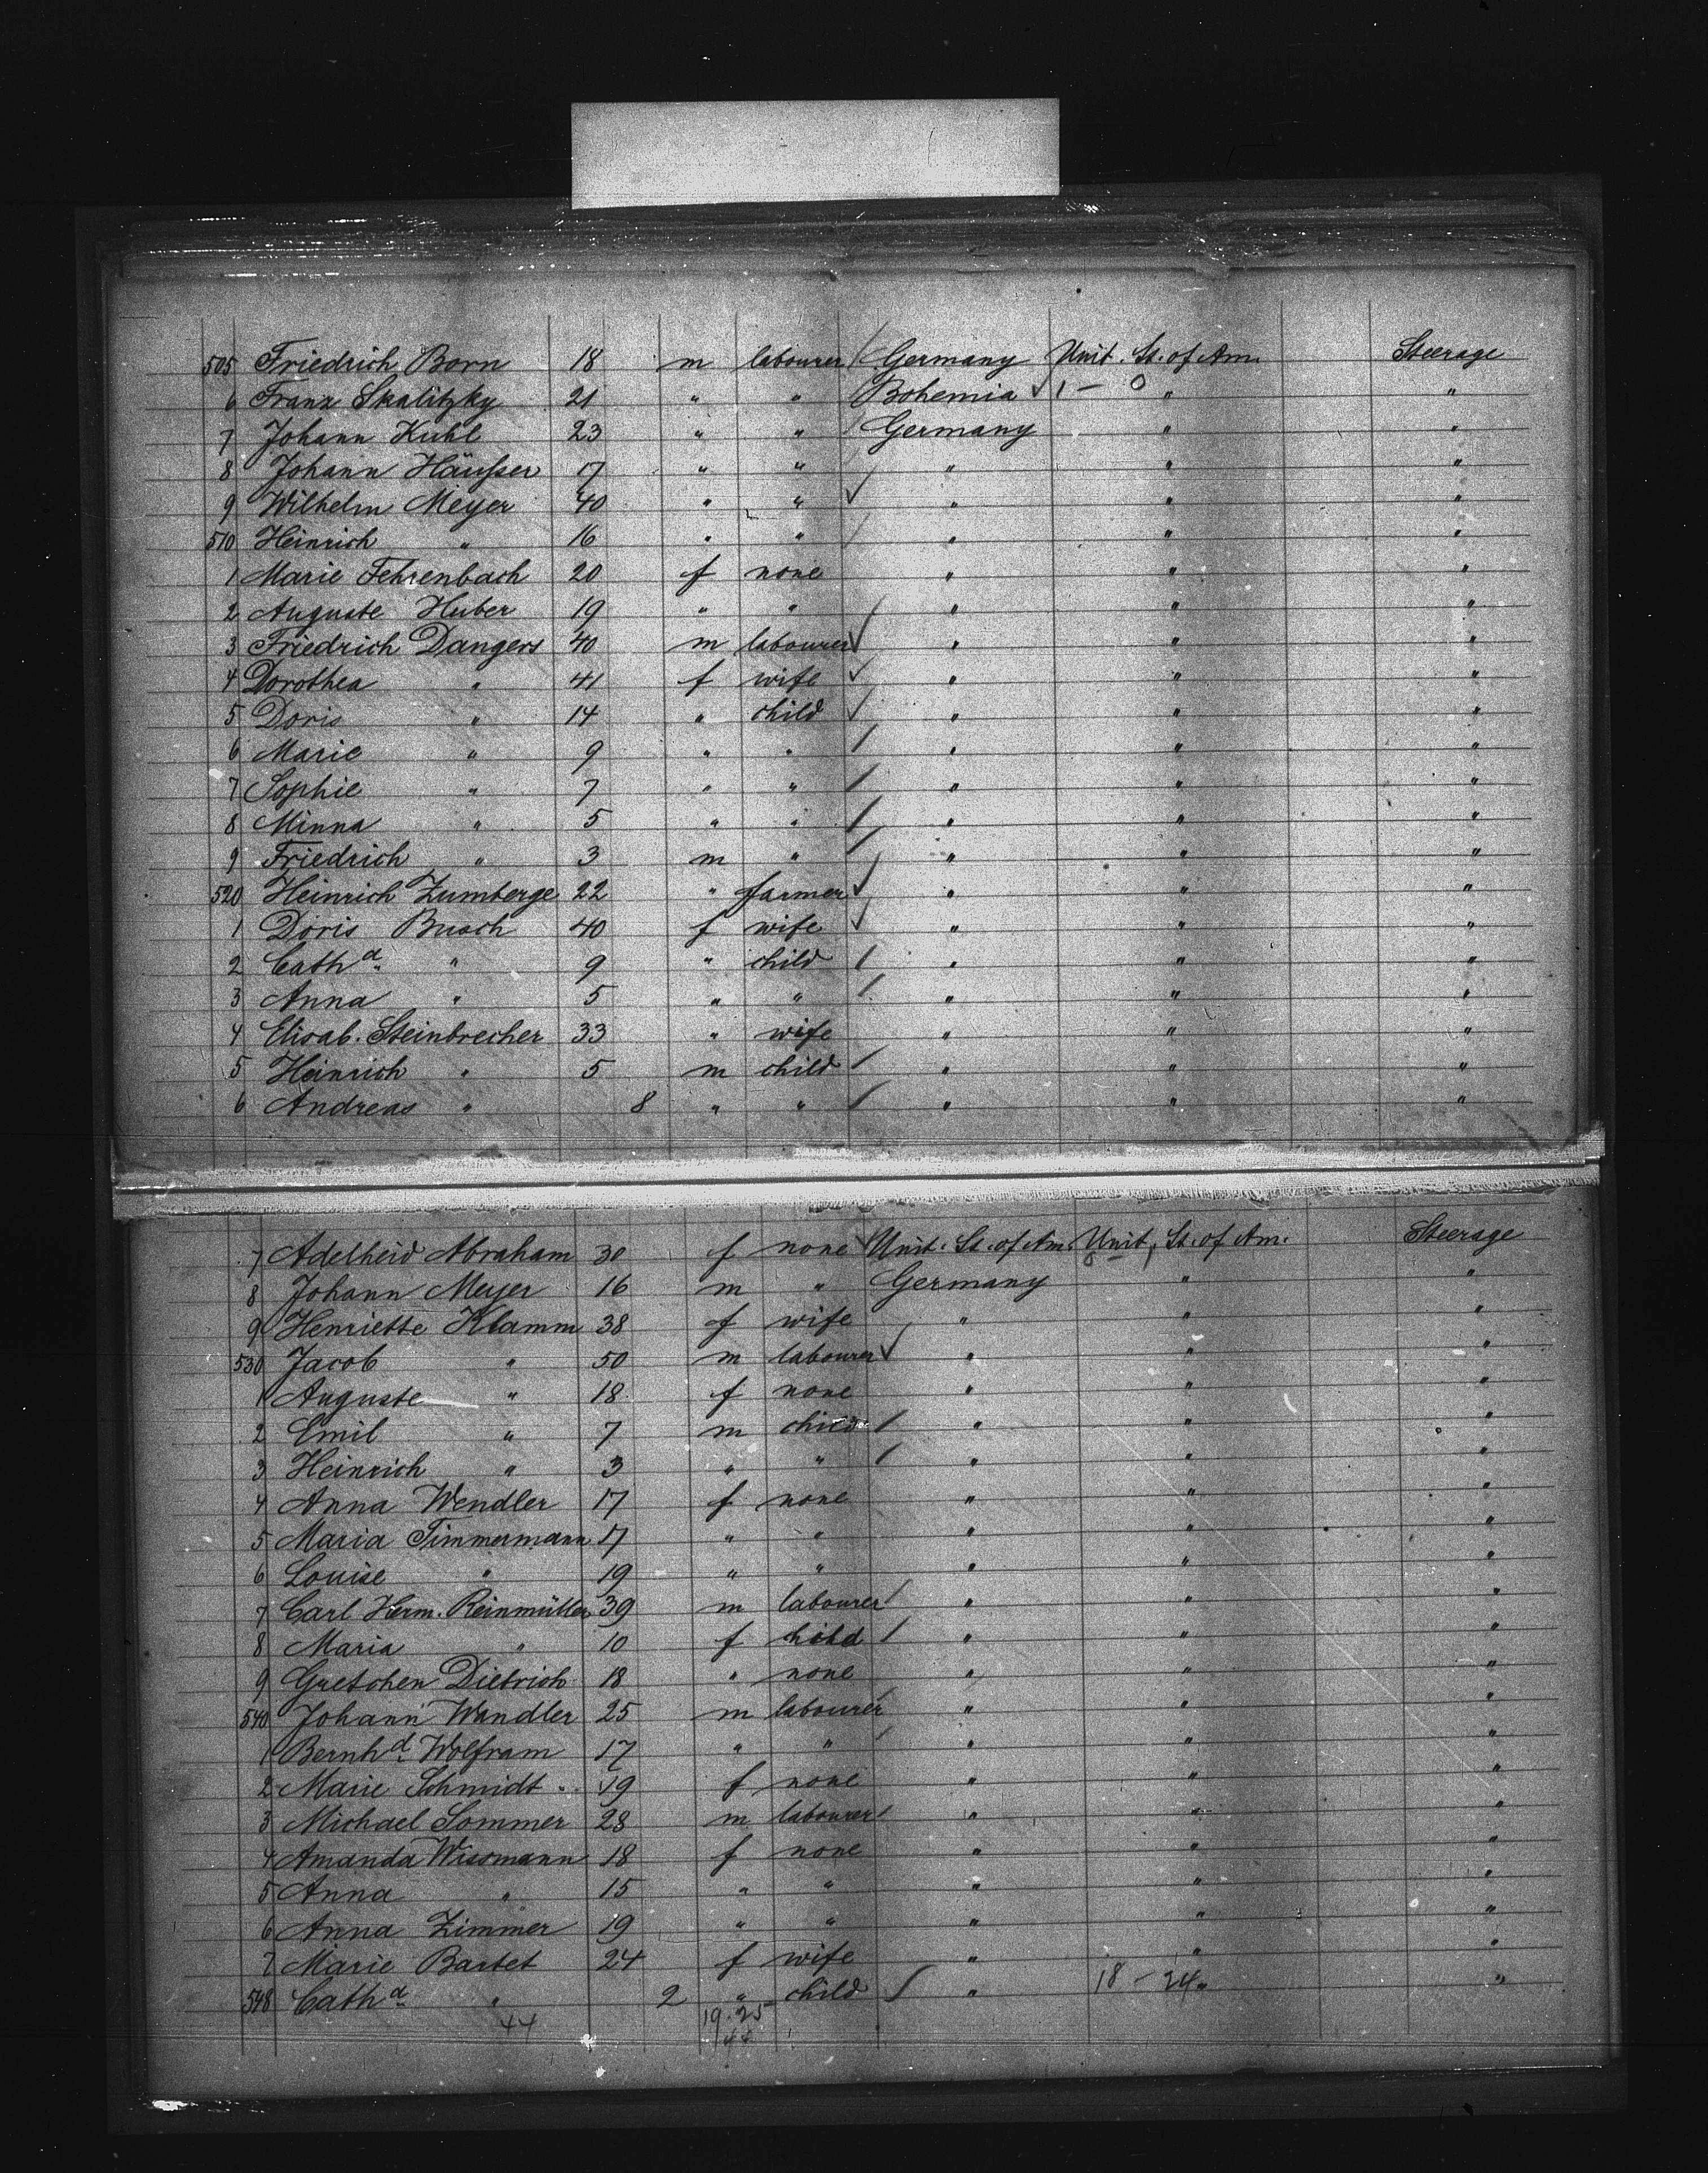 505 Friedrich Born 18 m labourer Germany Unit. St. of Am. Steerage
6 Franz Skalitzky 21 " " Bohemia 1 – 0 " "
7 Johann Kuhl 23 " " Germany " "
8 Johann Häußer 17 " " " " "
9 Wilhelm Meyer 40 " " " " "
510 Heinrich " 16 " " " " "
1 Marie Fehrenbach 20 f none " " "
2 Auguste Huber 19 " " " " "
3 Friedrich Dangers 40 m labourer " " "
4 Dorothea " 41 f wife " " "
5 Doris " 14 " child " " "
6 Marie " 9 " " " " "
7 Sophie " 7 " " " " "
8 Minna " 5 " " " " "
9 Friedrich " 3 m " " " "
520 Heinrich Zumberge 22 " farmer " " "
1 Doris Busch 40 f wife " " "
2 Cath.a " 9 " child " " "
3 Anna " 5 " " " " "
4 Elisab. Steinbrecher 33 " wife " " "
5 Heinrich " 5 m child " " "
6 Andreas " 8 " " " " "
7 Adelheid Abraham 30 f none Unit. St. of Am. Unit. St. of Am. Steerage
8 Johann Meyer 16 m " Germany " "
9 Henriette Klamm 38 f wife " " "
530 Jacob " 50 m labourer " " "
1 Auguste " 18 f none " " "
2 Emil " 7 m child " " "
3 Heinrich " 3 " " " " "
4 Anna Wendler 17 f none " " "
5 Maria Timmermann 17 " " " " "
6 Louise " 19 " " " " "
7 Carl Herm. Reinmüller 39 m labourer " " "
8 Maria " 10 f child " " "
9 Gretchen Dietrich 18 " none " " "
540 Johann Wendler 25 m labourer " " "
1 Bernh.d Wolfram 17 " " " " "
2 Marie Schmidt 19 f none " " "
3 Michael Sommer 28 m labourer " " "
4 Amanda Wissmann 18 f none " " "
5 Anna " 15 " " " " "
6 Anna Zimmer 19 " " " " "
7 Marie Bartet 24 f wife " " "
548 Cath.a " 2 " child " 18 – 24 " "
44 19.25
44